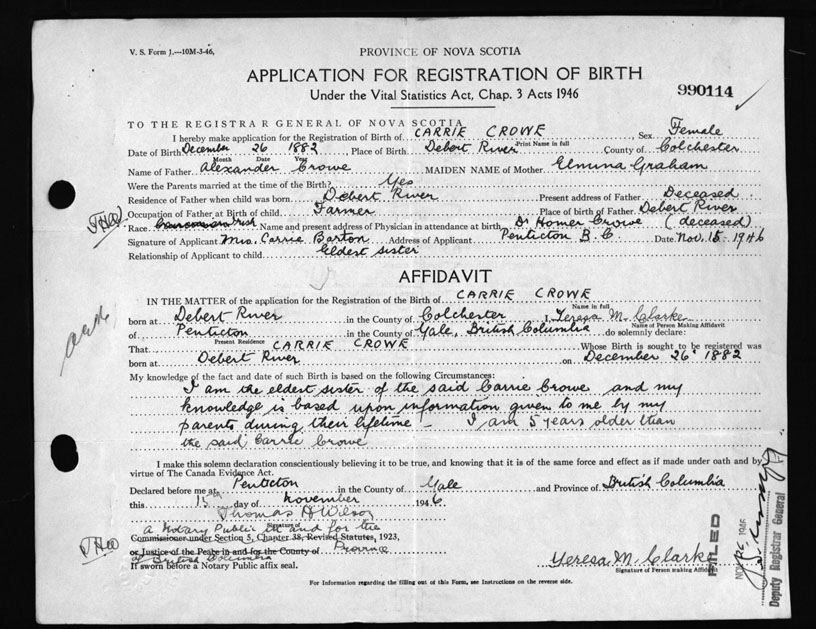 V. S. Form 1.—10M-3-46.
PROVINCE OF NOVA SCOTIA
APPLICATION FOR REGISTRATION OF BIRTH
990114
Under the Vital Statistics Act, Chap. 3 Acts 1946
TO THE REGISTRAR GENERAL OF NOVA SCOTIA
I hereby make application for the Registration of Birth of CARRIE CROWE, Sex Female
Print Name in full
Date of Birth December 26 1882 Place of Birth Debert River County of Colchester
Month Date Year
Name of Father Alexander Crowe MAIDEN NAME of Mother Elmina Graham
Were the Parents married at the time of the Birth? Yes
Residence of Father when child was born Debert River Present address of Father Deceased
Occupation of Father at Birth of child Farmer Place of birth of Father Debert River
Race Name and present address of Physician in attendance at birth Dr Homer Crowe (deceased)
Signature of Applicant Mrs. Carrie Barton Address of Applicant Penticton B.C Date Nov. 15 1946
Relationship of Applicant to child Eldest sister
AFFIDAVIT
IN THE MATTER of the application for the Registration of the Birth of CARRIE CROWE
Name in full
born at Debert River in the County of Colchester I, Teresa M. Clarke
Name of Person Making Affidavit
of Penticton in the County of Yale, British Columbia do solemnly declare:
Present Residence
That CARRIE CROWE Whose Birth is sought to be registered was
born at Debert River on December 26 1882
My knowledge of the fact and date of such Birth is based on the following Circumstances:
I am the eldest sister of the said Carrie Crowe and my
knowledge is based upon information given to me by my
parents during their lifetime - I am 5 years older than
the said Carrie Crowe
I make this solemn declaration conscientiously believing it to be true, and knowing that it is of the same force and effect as if made under oath and by
virtue of The Canada Evidence Act.
Declared before me at Penticton in the County of Yale and Province of British Columbia
this 15 day of November 1946
Thomas H Wilson
Signature of
a Notary Public in and for the
Commissioner under Section 5, Chapter 38, Revised Statutes, 1923,
or Justice of the Peace in and for the County of Province
of British Columbia
If sworn before a Notary Public affix seal.
Teresa M. Clarke
Signature of Person making Affidavit
FILED
Deputy Registrar General
For Information regarding the filling out of this Form, see Instructions on the reverse side.